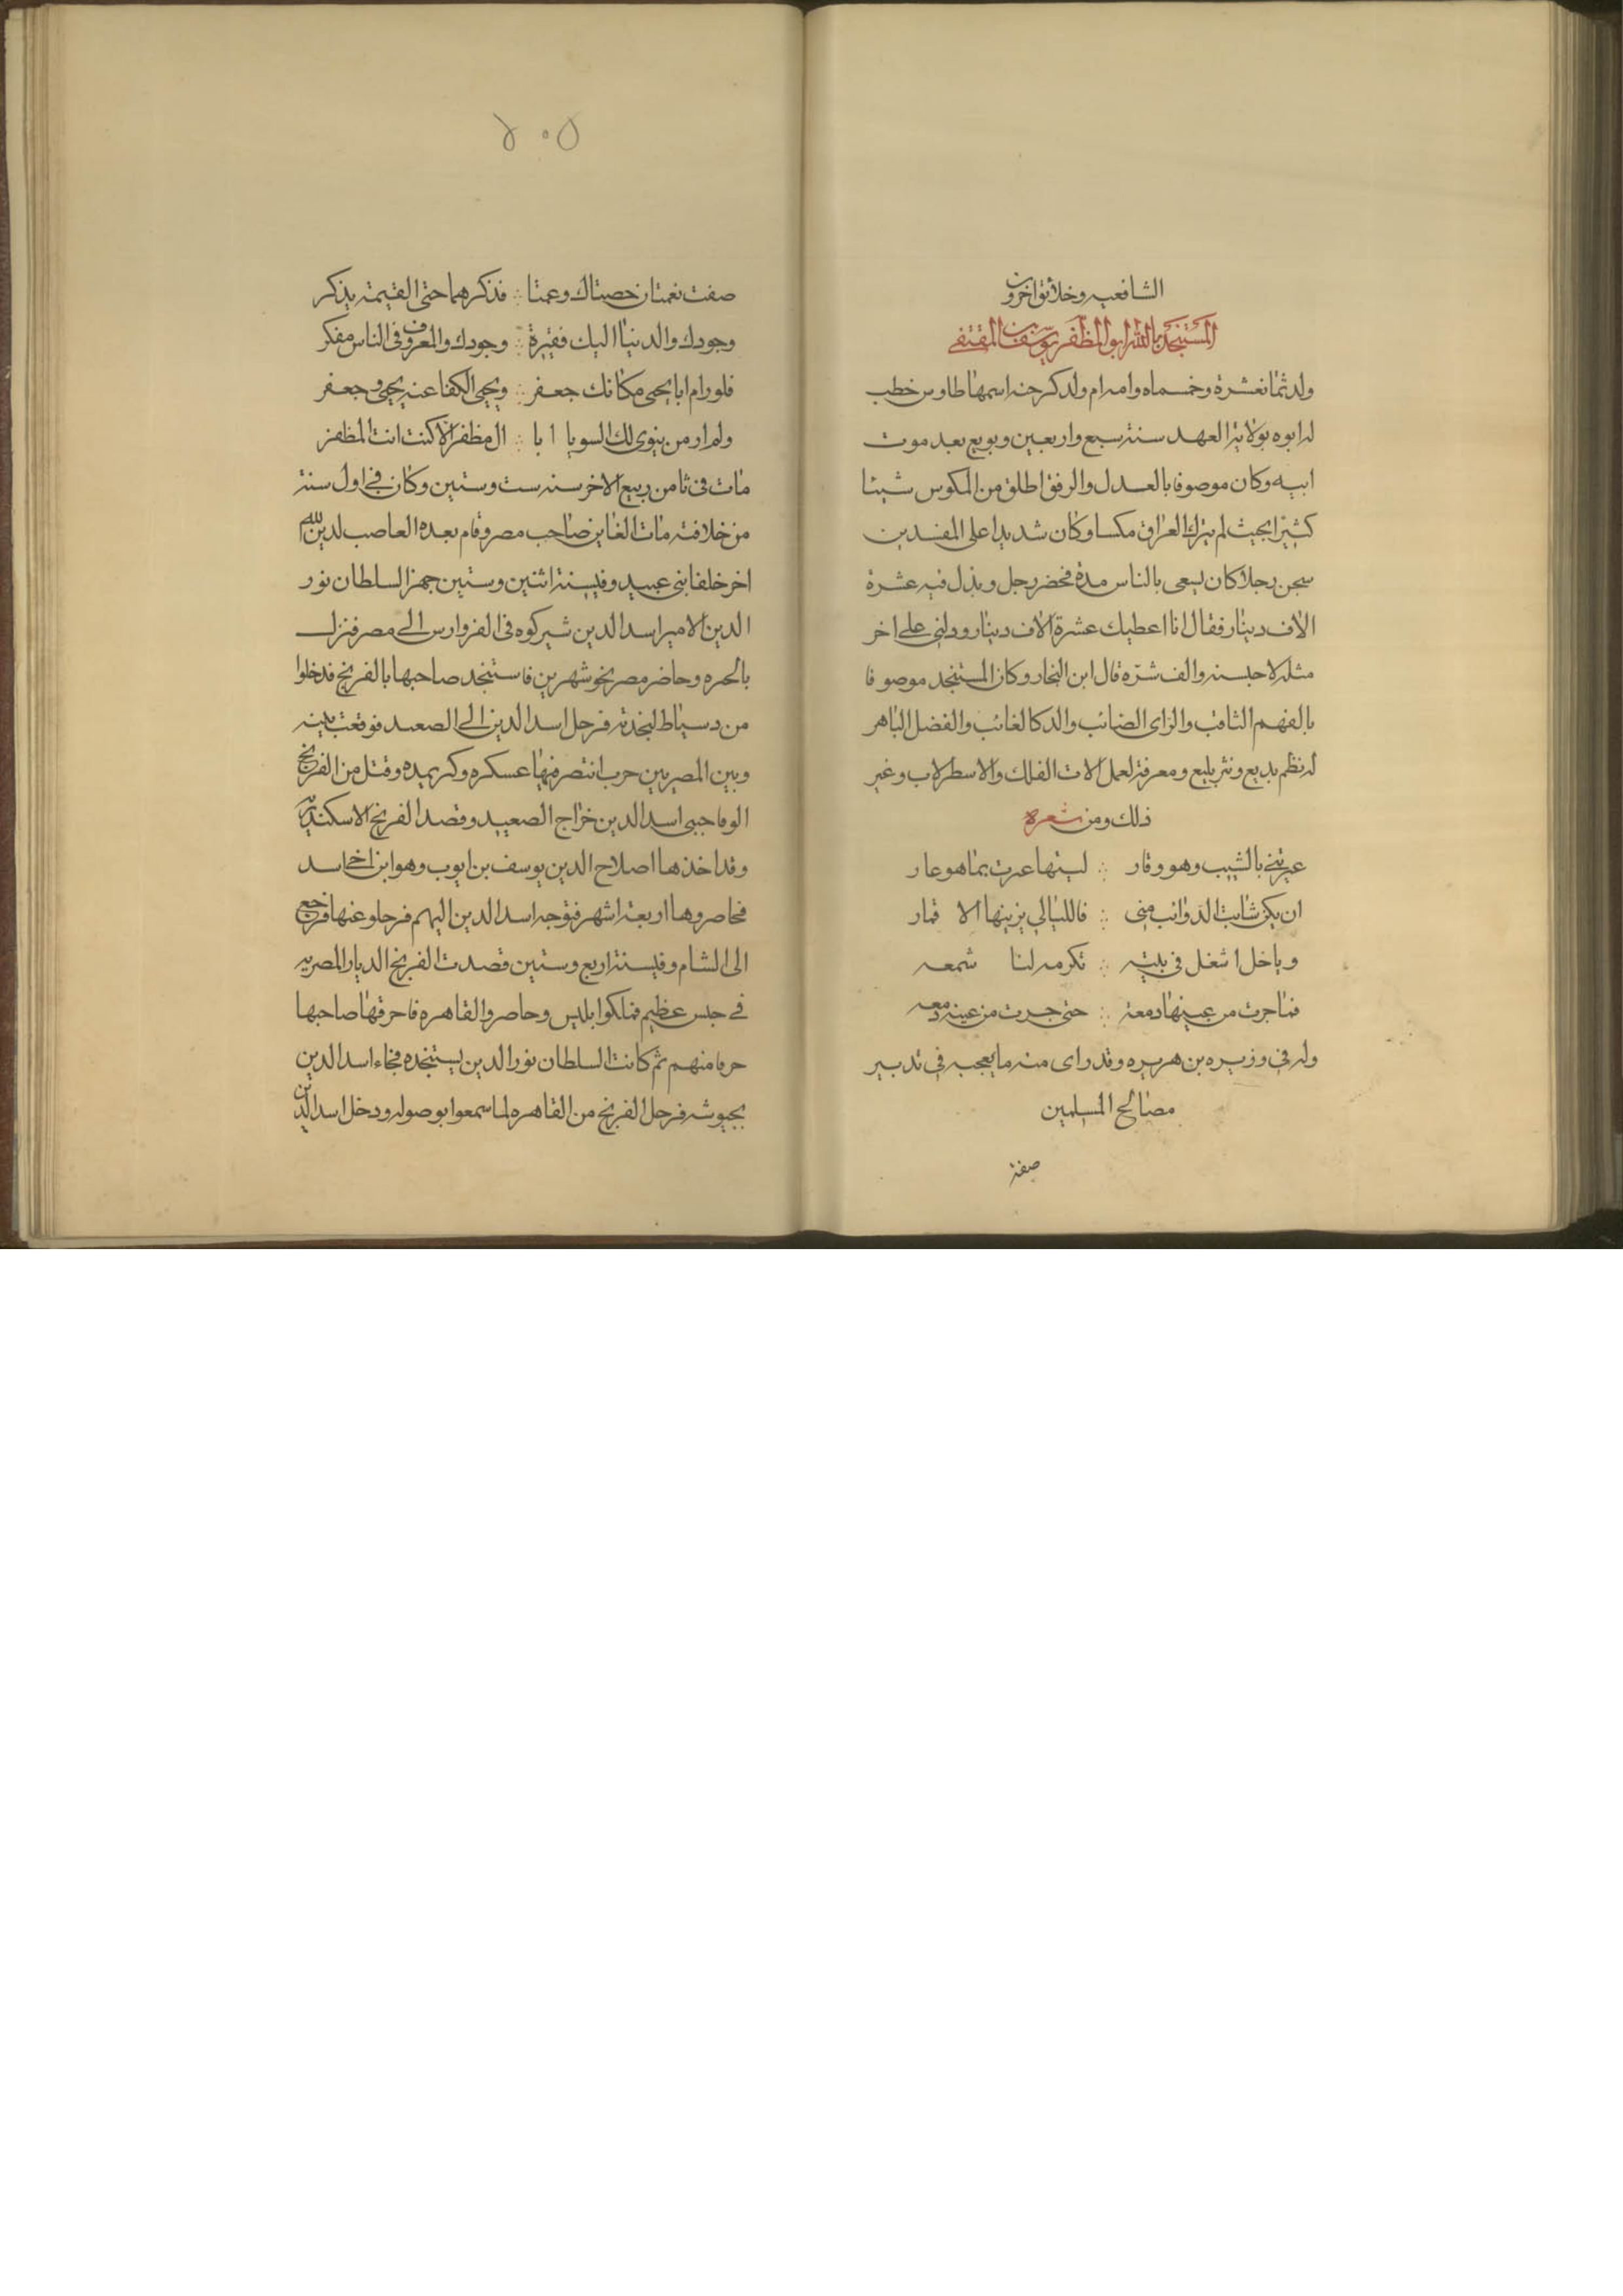 الشافعيه وخلائق اخرون
المستنجد بالله ابو المظفر يوسف بن المقتفي
ولد ثمانعشرة وخمسماه وامه ام ولد كرجنه اسمها طاوس خطب
له ابوه بولاية العهد سنة سبع واربعين وبويع بعد موت
ابيه وكان موصوفا بالعدل والرفق اطلق من المكوس شيئا
كثيرا بحيث لم يترك بالعراق مكسا وكان شديدا على المفسدين
سجن رجلا كان يسعى بالناس مدة فحضر رجل وبذل فيه عشرة
الاف دينار فقال انا اعطيك عشرة الاف دينار ودلني على اخر
مثله لاحبسنه والف شره قال ابن النجار وكان المستنجد موصوفا
بالفهم الثاقب والراى الصائب والدكا الغائب والفضل الباهر
له نظم بديع ونثر بليغ ومعرفة لعمل الات الفلك والاسطرلاب وغير
ذلك ومن شعره
عيرتني بالشيب وهو وقار ∴ ليتها عيرت بما هو عار
ان يكن شابت الذوائب مني ∴ فالليالي يزينها الا قمار
وباخل اشغل في بيته ∴ تكرمه لنا شمعه
فما جرت من عينها دمعة ∴ حتى جرت من عينه دمعه
وله في وزيره بن هريره وقد راى منه ما يعجبه في تدبير
مصالح المسلمين
صفت
٤٠٥
صفت نعمتان خصتاك وعمتا ∴ فذكرهما حتى القيمة يذكر
وجودك والدنيا اليك فقيرة ∴ وجودك والمعروف في الناس مفكر
فلو رام ابا يحيى مكانك جعفر ∴ ويحيى الكفا عنه يحيى وجعفر
ولم ار من ينوى لك السو يا ابا ∴ ال مظفر الا كنت انت المظفر
مات في ثامن ربيع الاخر سنه ست وستين وكان في اول سنة
من خلافته مات الفايز صاحب مصر وقام بعده العاصب لدين الله
اخر خلفا بني عبيد وفي سنة اثنين وستين جهز السلطان نور
الدين الامير اسد الدين شيركوه في الفز وارس الى مصر فنزل
بالحره وحاضر مصر نحو شهرين فاستنجد صاحبها بالفرنج فدخلوا
من دسياط لنجدته فرحل اسد الدين الى الصعيد فوقعت بينه
وبين المصريين حرب انتصر فيها عسكره وكر بيده وقتل من الفرنج
الوفا جبى اسد الدين خراج الصعيد وقصد الفرنج الاسكندريه
وقد اخذها اصلاح الدين يوسف بن ايوب وهو ابن اخى اسد
فحاصروها اربعة اشهر فتوجه اسد الدين اليهم فرحلو عنها فرجع
الى الشام وفي سنة اربع وستين قصدت الفرنج الديار المصريه
في جيس عظيم فملكوا بلبيس وحاصروا القاهره فاحرقها صاحبها
حرفا منهم ثم كاتب السلطان نور الدين يستنجده فجاء اسد الدين
بجيوشه فرحل الفرنج من القاهره لما سمعوا بوصوله ودخل اسد الدين